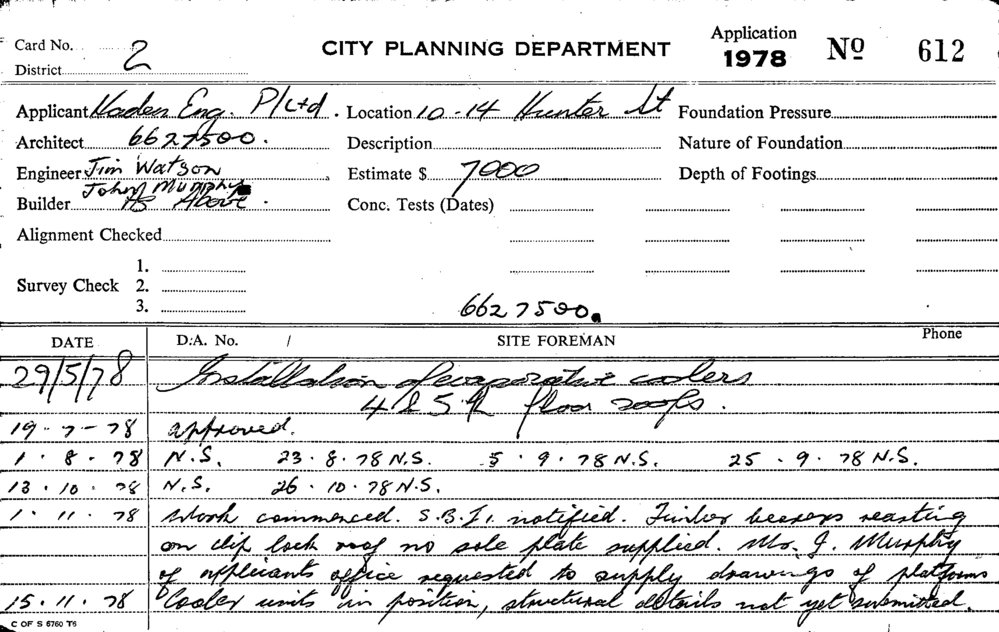 Card No. 2
District
CITY PLANNING DEPARTMENT
Application
1978
No 612
Applicant Haden Eng. P/Ltd. Location 10-14 Hunter St Foundation Pressure
Architect 6627500. Description Nature of Foundation
Engineer Jim Watson Estimate $ 7000 Depth of Footings
John Murphy
Builder As Above. Conc. Tests (Dates)
Alignment Checked
1.
Survey Check 2.
3.
6627500.
DATE D.A. No. / SITE FOREMAN Phone
29/5/78 Installation of evaporative coolers
4 & 5th floor roofs.
19-7-78 approved.
1.8.78 N.S. 23.8.78 N.S. 5.9.78 N.S. 25.9.78 N.S.
13.10.78 N.S. 26.10.78 N.S.
1.11.78 Work commenced. S.B.I. notified. Timber bearers reasting
on clip lock roof no sole plate supplied. Mr. J. Murphy
of applicants office requested to supply drawings of platforms
15.11.78 Cooler units in position, structural details not yet submitted.
C OF S 6760 T6